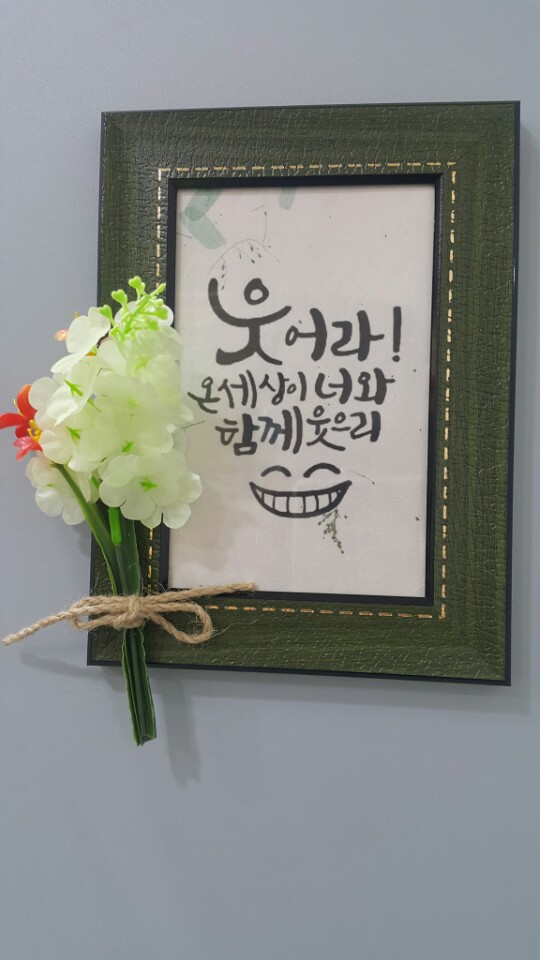 웃어라!
온세상이 너와
함께 웃으리